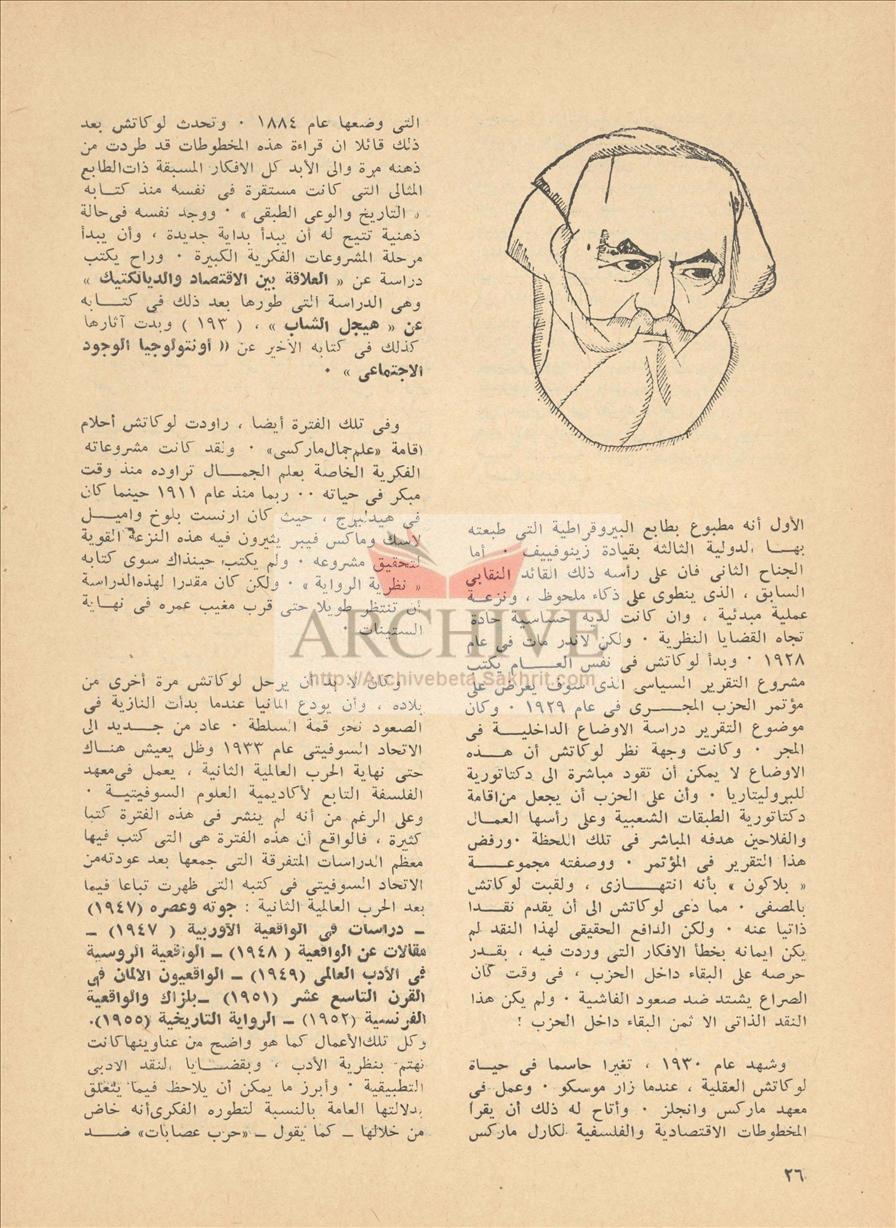 الأول أنه مطبوع بطابع البيروقراطية التى طبعته
بهــا الدولية الثالثة بقيادة زينوفييف ٠ أما
الجناح الثانى فان على رأسه ذلك القائد النقابى
السابق ، الذى ينطوى على ذكاء ملحوظ ، ونزعــة
عملية مبدئية ، وان كانت لديه حساسية حادة
تجاه القضايا النظرية ٠ ولكن لاندر مات فى عام
١٩٢٨ ٠ وبدأ لوكاتش فى نفس العــام يكتب
مشروع التقرير السياسى الذى سوف يعرض على
مؤتمر الحزب المجــرى فى عام ١٩٢٩ ٠ وكان
موضوع التقرير دراسة الاوضاع الداخليــة فى
المجر ٠ وكانت وجهة نظر لوكاتش أن هــذه
الاوضاع لا يمكن أن تقود مباشرة الى دكتاتورية
للبروليتاريا ٠ وأن على الحزب أن يجعل من اقامة
دكتاتورية الطبقات الشعبية وعلى رأسها العمــال
والفلاحين هدفه المباشر فى تلك اللحظة ٠ ورفض
هذا التقرير فى المؤتمر ٠ ووصفته مجموعــــة
« بلاكون » بأنه انتهــازى ، ولقبت لوكاتش
بالمصفى ٠ مما دعى لوكاتش الى أن يقدم نقــدا
ذاتيا عنه ٠ ولكن الدافع الحقيقى لهذا النقد لم
يكن ايمانه بخطأ الافكار التى وردت فيه ، بقــدر
حرصه على البقاء داخل الحزب ، فى وقت كان
الصراع يشتد ضد صعود الفاشية ٠ ولم يكن هذا
النقد الذاتى الا ثمن البقاء داخل الحزب !
وشهد عام ١٩٣٠ ، تغيرا حاسما فى حيــاة
لوكاتش العقلية ، عندما زار موسكو ٠ وعمل فى
معهد ماركس وانجلز ٠ وأتاح له ذلك أن يقرأ
المخطوطات الاقتصادية والفلسفية لكارل ماركس
التى وضعها عام ١٨٨٤ ٠ وتحدث لوكاتش بعد
ذلك قائلا ان قراءة هذه المخطوطات قد طردت من
ذهنه مرة والى الأبد كل الافكار المسبقة ذات الطابع
المثالى التى كانت مستقرة فى نفسه منذ كتــابه
« التاريخ والوعى الطبقى » ٠ ووجد نفسه فى حالة
ذهنية تتيح له أن يبدأ بداية جديدة ، وأن يبدأ
مرحلة المشروعات الفكرية الكبيرة ٠ وراح يكتب
دراسة عن « العلاقة بين الاقتصاد والديالكتيك »
وهى الدراسة التى طورها بعد ذلك فى كتــــابه
عن « هيجل الشاب » ، ( ١٩٣ ) وبدت آثارها
كذلك فى كتابه الأخير عن (( أونتولوجيا الوجود
الاجتماعى » ٠
وفى تلك الفترة أيضا ، راودت لوكاتش أحلام
اقامة «علم جمال ماركسى» ٠ ولقد كانت مشروعاته
الفكرية الخاصة بعلم الجمـــال تراوده منذ وقت
مبكر فى حياته ٠٠ ربما منذ عام ١٩١١ حينما كان
فى هيدلبرج ، حيث كان ارنست بلوخ واميــل
لاسك وماكس فيبر يثيرون فيه هذه النزعة القوية
لتحقيق مشروعه ٠ ولم يكتب حينذاك سوى كتابه
« نظرية الرواية » ٠ ولكن كان مقدرا لهذه الدراسة
أن تنتظر طويلا حتى قرب مغيب عمره فى نهــاية
الستينات ٠
وكان لا بد أن يرحل لوكاتش مرة أخرى من
بلاده ، وأن يودع المانيا عندما بدأت النازية فى
الصعود نحو قمة السلطة ٠ عاد من جــديد الى
الاتحاد السوفيتى عام ١٩٣٣ وظل يعيش هنــاك
حتى نهاية الحرب العالمية الثانية ، يعمل فى معهد
الفلسفة التابع لأكاديمية العلوم السوفيتيــة ٠
وعلى الرغم من أنه لم ينشر فى هذه الفترة كتبا
كثيرة ، فالواقع أن هذه الفترة هى التى كتب فيها
معظم الدراسات المتفرقة التى جمعها بعد عودته من
الاتحاد السوفيتى فى كتبه التى ظهرت تباعا فيما
بعد الحرب العالمية الثانية : جوته وعصره (١٩٤٧)
ــ دراسات فى الواقعية الأوربية ( ١٩٤٧) ــ
مقالات عن الواقعية ( ١٩٤٨) ــ الواقعية الروسية
فى الأدب العالمى (١٩٤٩) ــ الواقعيون الالمان فى
القرن التاسع عشر (١٩٥١) ــ بلزاك والواقعية
الفرنسية (١٩٥٢) ــ الرواية التاريخية (١٩٥٥)٠
وكل تلك الأعمال كما هو واضح من عناوينها كانت
تهتم بنظرية الأدب ، وبقضــايا النقد الادبى
التطبيقية ٠ وأبرز ما يمكن أن يلاحظ فيما يتعلق
بدلالتها العامة بالنسبة لتطوره الفكرى أنه خاض
من خلالها ــ كما يقول ــ «حرب عصابات» ضــد
ARCHIVE
http://Archivebeta.Sakhrit.com
٢٦